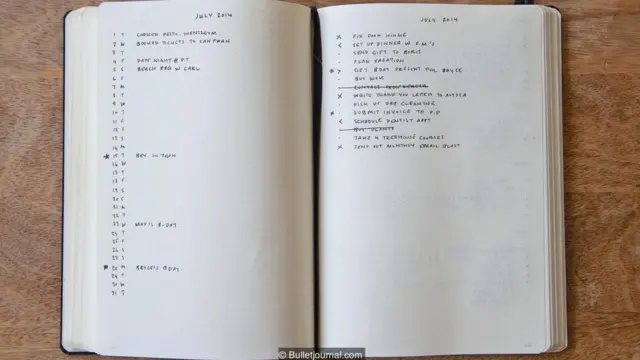 JULY 2014
1 T LAUNCHED PHOTO. WEDNESDAY
2 W BOOKED TICKETS TO SAN FRAN
3 T
4 F DATE NIGHT @ P.T
5 S BEACH BBQ W CARL
6 S
7 M
8 T
9 W
10 T
11 F
12 S
13 S
14 M
15 T BEV IN TOWN
16 W
17 T
18 F
19 S
20 S
21 M
22 T
23 W B-DAY
24 T
25 F
26 S
27 S
28 M BDAY.
29 T
30 W
31 T
JULY 2014
X FIX DOOR HINGE
< SET UP DINNER W P.M'S
· SEND GIFT TO BORIS
· PLAN VACATION
* > GET BDAY PRESENT FOR BRYCE
· BUY WOK
X WRITE THANK YOU LETTER TO
· PICK UP DRY CLEANING
* · SUBMIT INVOICE TO P.P
< SCHEDULE DENTIST APPT
BUY PLANTS
· TAKE COURSES
X SEND OUT MONTHLY EMAIL BLAST
© Bulletjournal.com